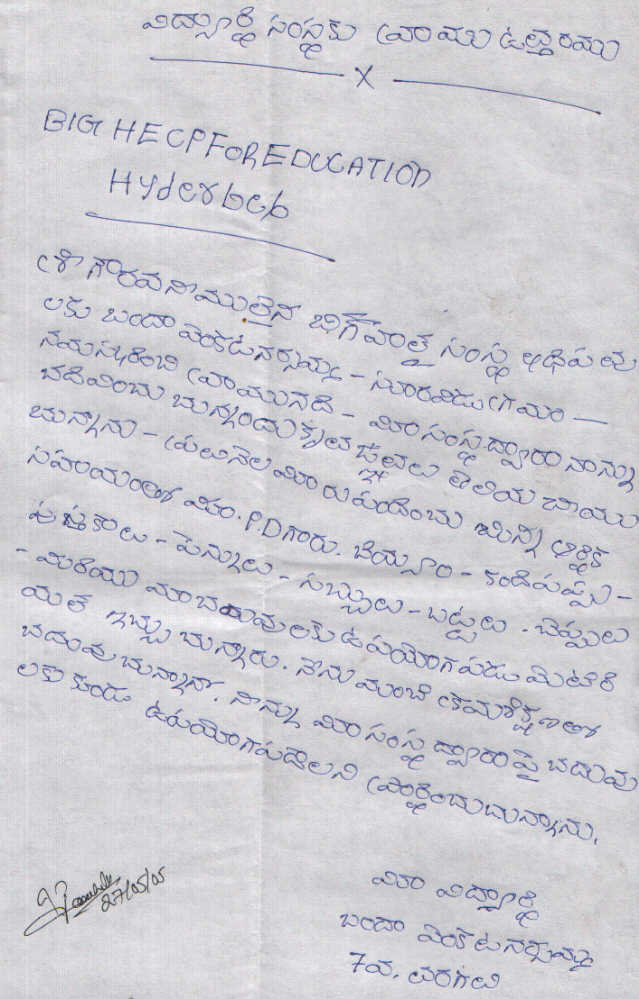 విద్యార్థి సంస్థకు వ్రాయు ఉత్తరము
X
BIG HECP FOR EDUCATION
Hyderbeb
శ్రీ గౌరవనీయులైన బిగ్ హెల్ప్ సంస్థ అధిపతు
లకు బందా వెంకటనర్సమ్మ - సూరవీడు గ్రామం -
నమస్కరించి వ్రాయునది - మీ సంస్థ ద్వారా నాన్ను
చదివించు చున్నందుకు కృతజ్ఞతలు తెలియ చాయు
చున్నాను - ప్రతినెల మీరు పంపించు చున్న ఆర్థిక
సహాయంతో మా. P.D గారు. బియ్యం - కందిపప్పు -
పుస్తకాలు - పెన్నులు - సబ్బులు - బట్టలు - చెప్పుల
- మరియు మా చదువులకు ఉపయోగపడు మెటిరి
యల్ ఇచ్చు చున్నారు. నేను మంచి క్రమశిక్షణతో
చదువు చున్నాను. నాన్ను మీ సంస్థ ద్వారా పై చదువు
లకు కూడా ఉపయోగపడాలని ప్రార్థించుచున్నాను.
మీ విద్యార్థి
బందా వెంకటనర్సమ్మ
7వ. తరగతి
27/05/05